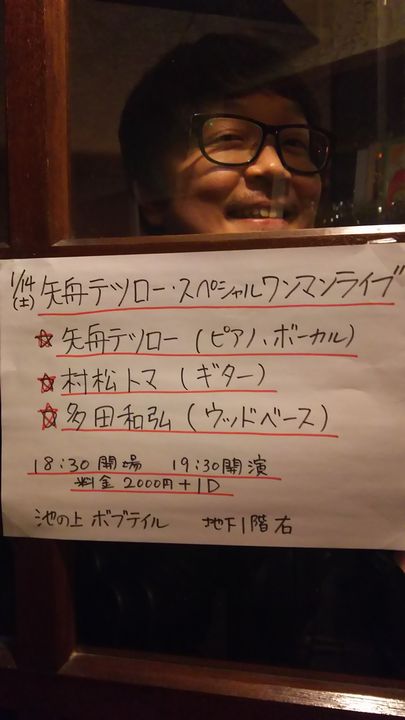 1/14(土) 矢舟テツロー・スペシャルワンマンライブ
☆ 矢舟テツロー (ピアノ、ボーカル)
☆ 村松トマ (ギター)
☆ 多田和弘 (ウッドベース)
18:30開場 19:30開演
料金 2000円+1D
池の上 ボブテイル 地下1階右